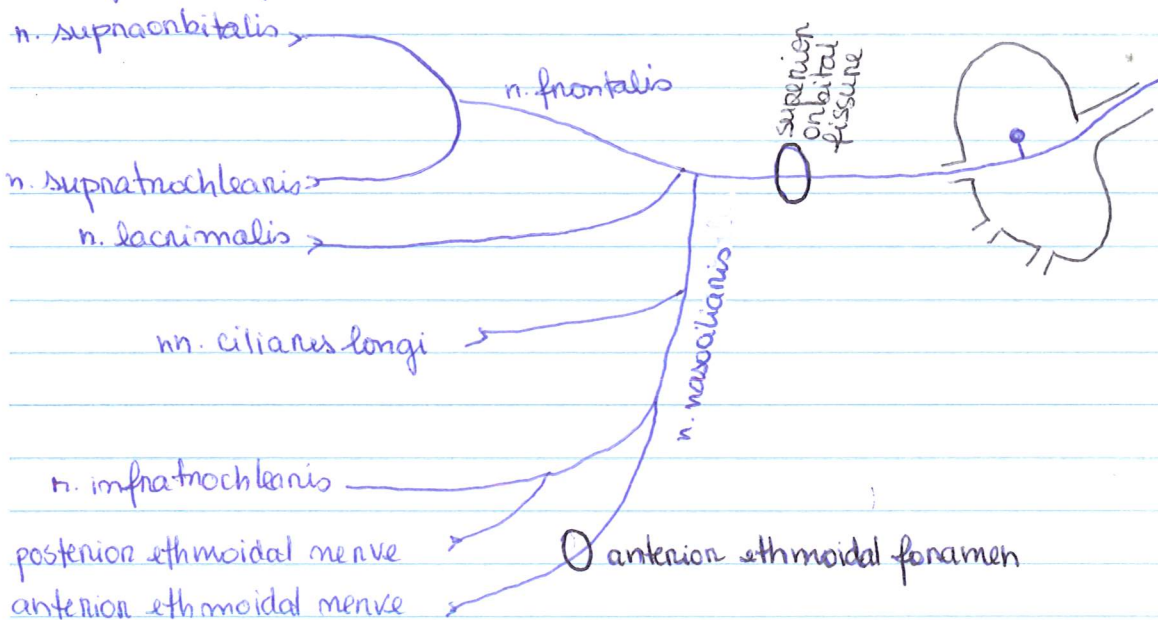 n. supraorbitalis
n. frontalis
superior
orbital
fissure
n. supratrochlearis
n. lacrimalis
nn. ciliares longi
n. nasociliaris
n. infratrochlearis
posterior ethmoidal nerve
anterior ethmoidal foramen
anterior ethmoidal nerve